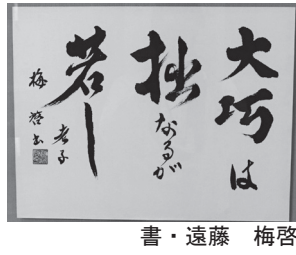 大巧は
拙なるが
若し
老子
梅啓書
書・遠藤　梅啓